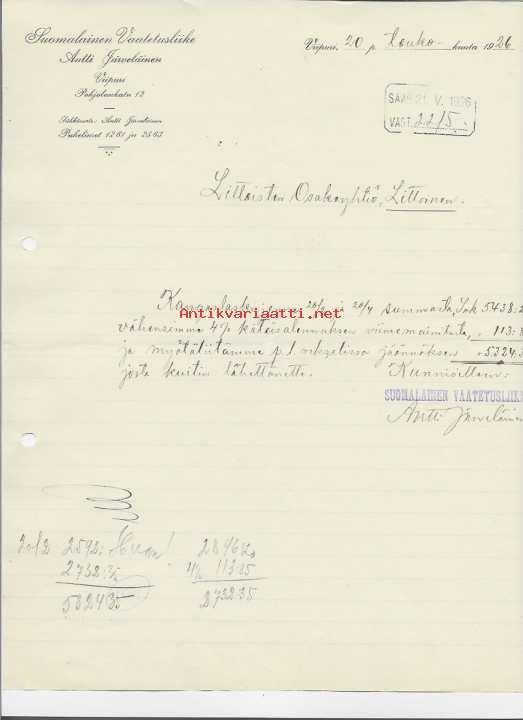 Suomalainen Vaatetusliike
Antti Järveläinen
Viipuri
Pohjolankatu 12
Sähköosote: Antti Järveläinen
Puhelimet 1261 ja 2563
Viipuri, 20 p. Touko- kuuta 1926.
SAAP. 21. V. 1926
VAST. 22/5.
Littoisten Osakeyhtiö, Littoinen.
Antikvariaatti.net
Kangaslasku 20/3 ja 20/4 summasta, Smk 5438:2
vähensimme 4% käteisalennuksen viimemainitusta, " 113:8
ja myötäliitämme p.l. vekselissä jäännöksen " 5324:3
josta kuitin lähettänette. Kunnioittaen:
SUOMALAINEN VAATETUSLIIKE
Antti Järveläinen
2592:
2732:35
5324:35
2846:20
4% 113:85
2732:35